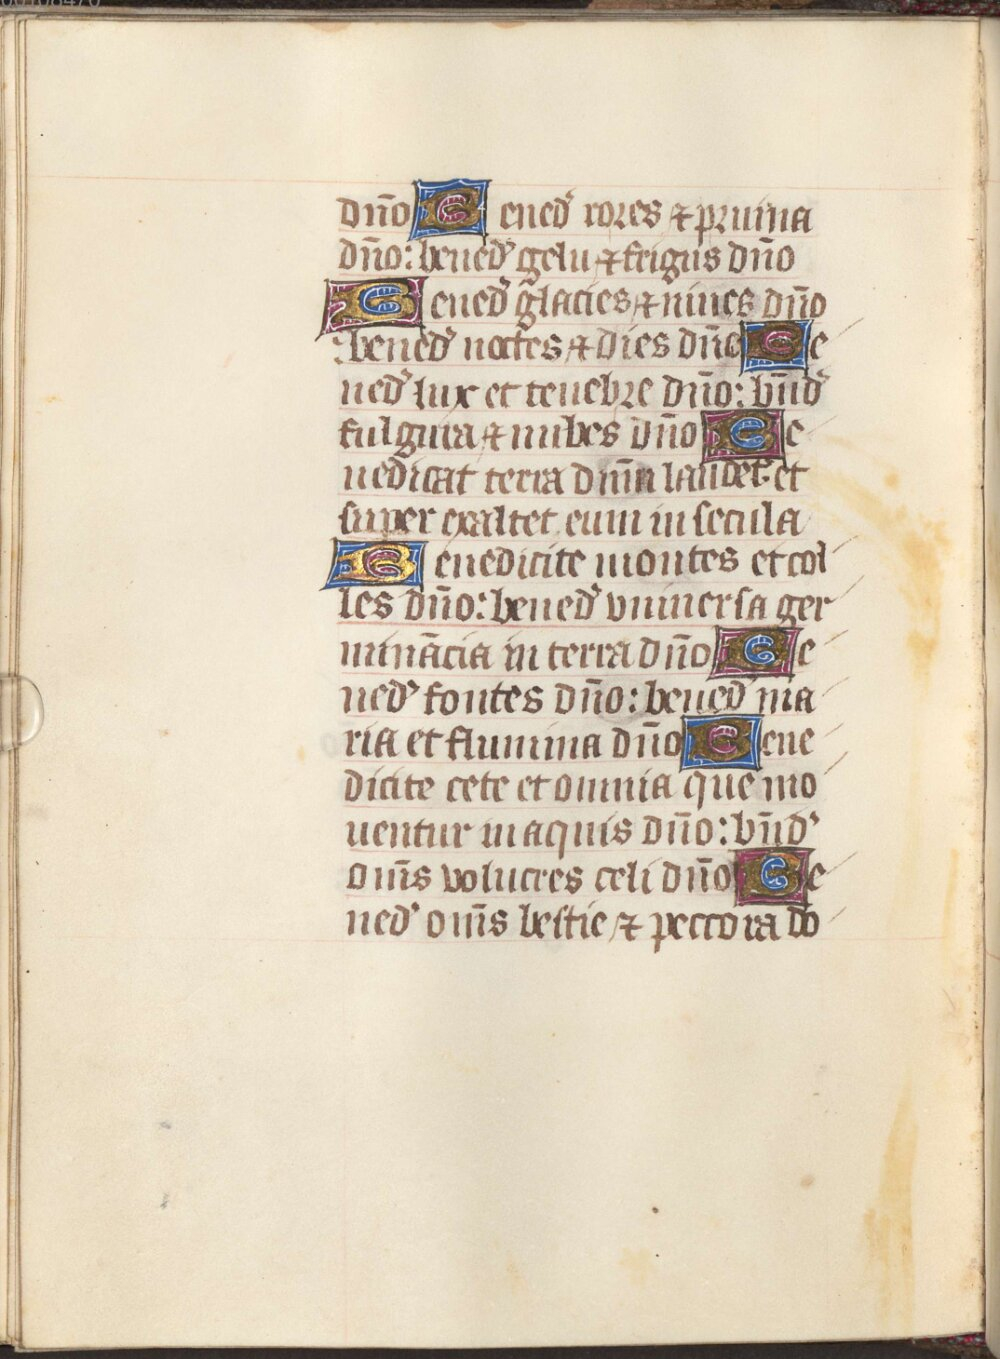 dn̄o Bened᷒ rores ⁊ pruina
dn̄o: bened᷒ gelu ⁊ frigus dn̄o
Bened᷒ glacies ⁊ niues dn̄o
: bened᷒ noctes ⁊ dies dn̄o Be
ned᷒ lux et tenebre dn̄o: bn̄d᷒
fulgura ⁊ nubes dn̄o Be
nedicat terra dn̄m laudet: et
super exaltet eum in secula
Benedicite montes et col
les dn̄o: bened᷒ vniuersa ger
minācia in terra dn̄o Be
ned᷒ fontes dn̄o: bened᷒ ma
ria et flumina dn̄o Bene
dicite cete et omnia que mo
uentur in aquis dn̄o: bn̄d᷒
om̄s volucres celi dn̄o Be
ned᷒ om̄s bestie ⁊ peccora do